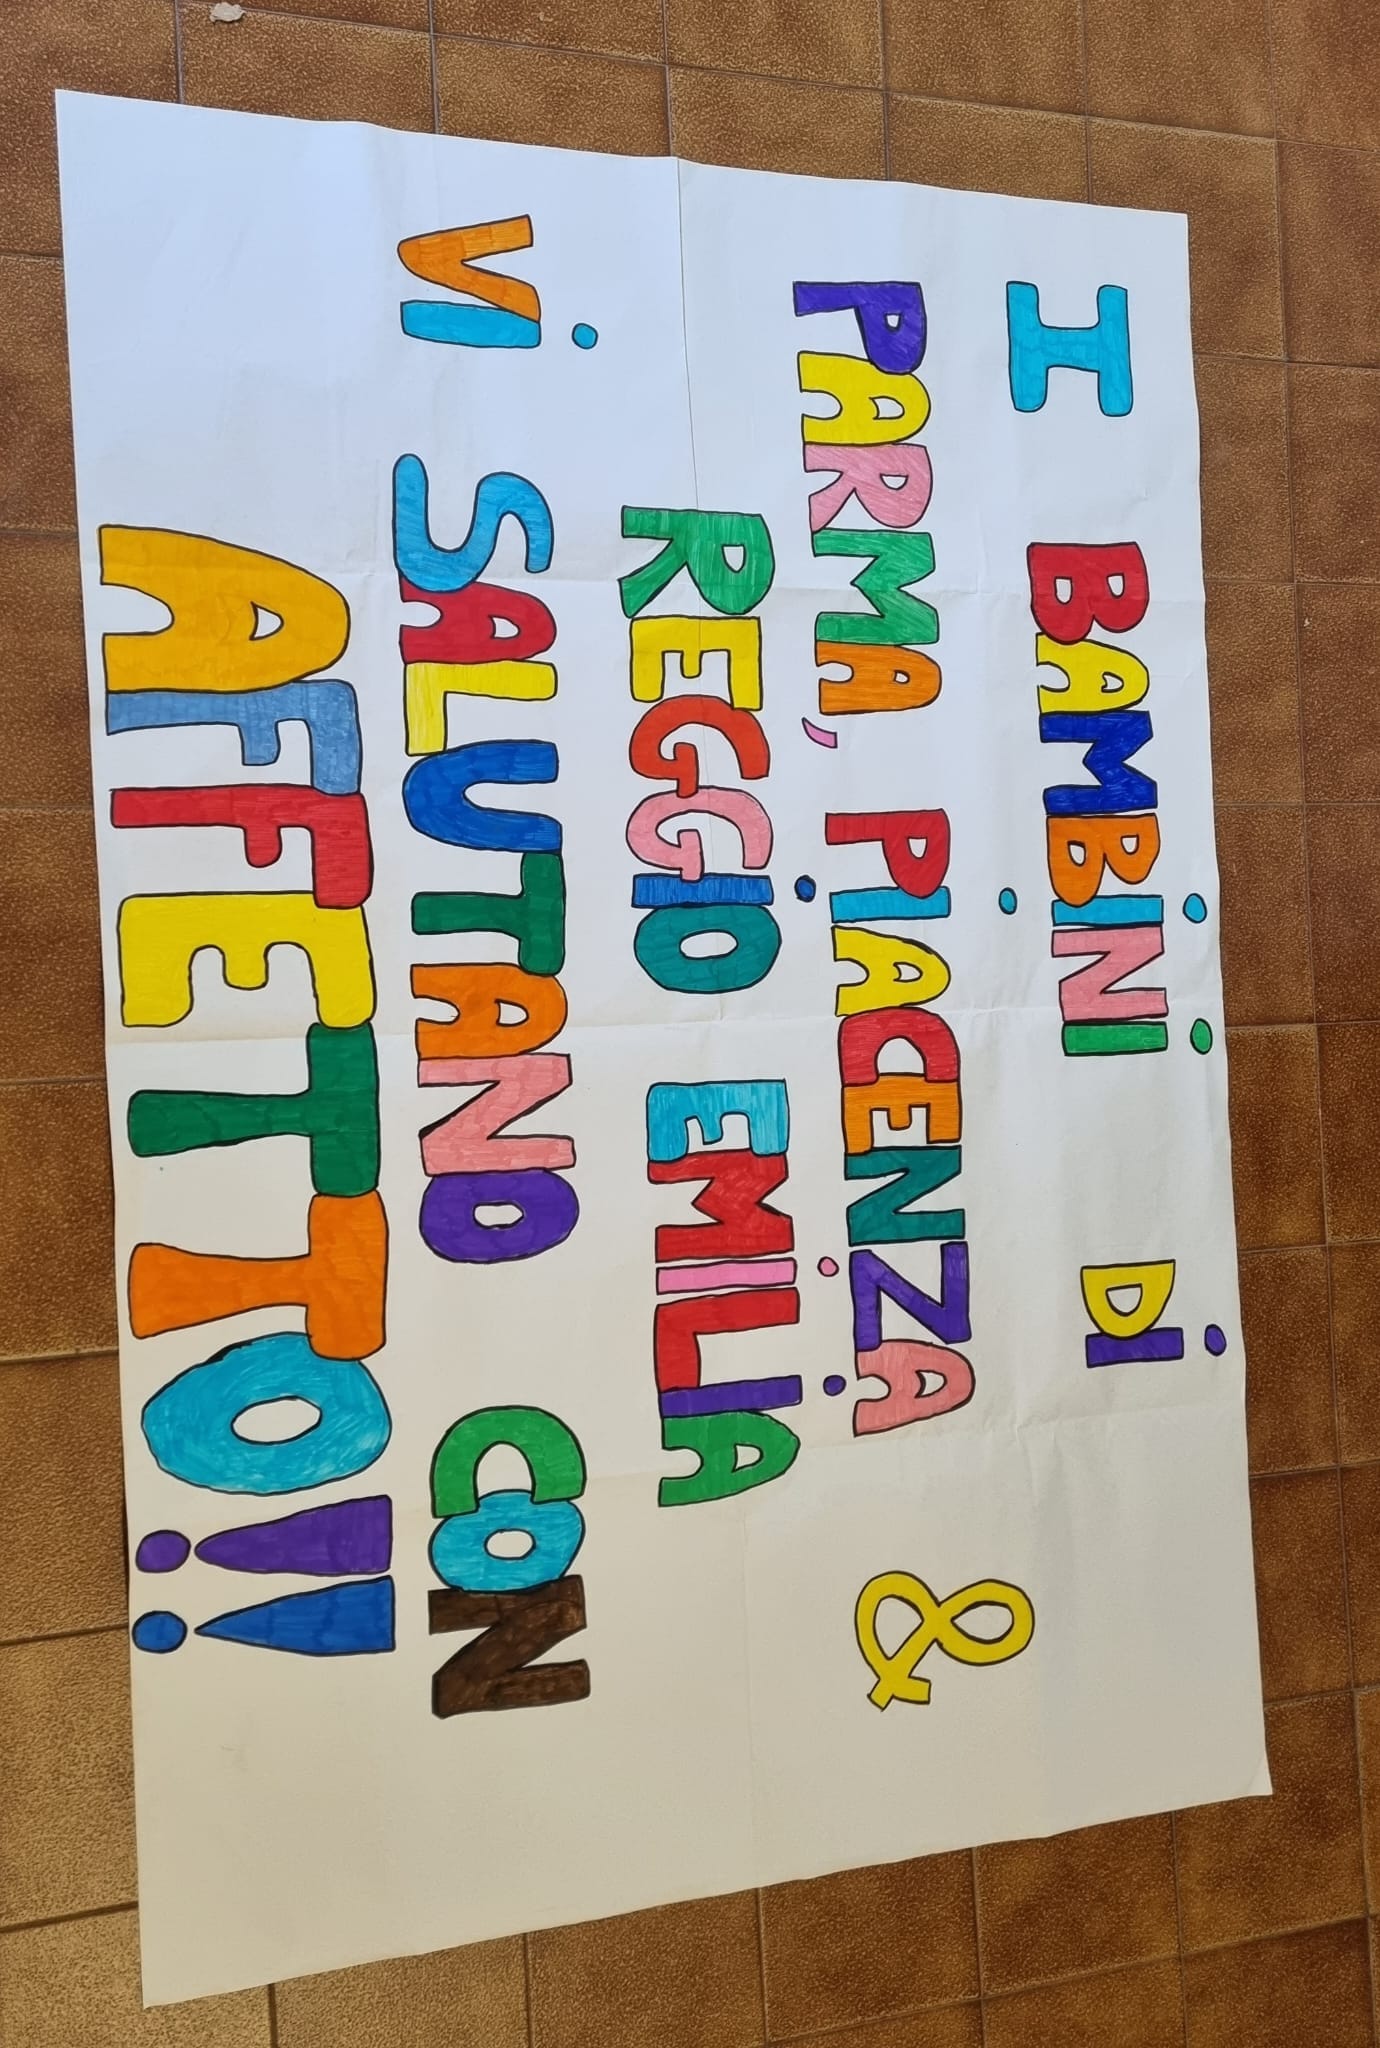 I BAMBiNi Di
PARMA, PiACENZA &
REGGiO EMiLiA
Vi SALUTANO CON
AFFETTO!!